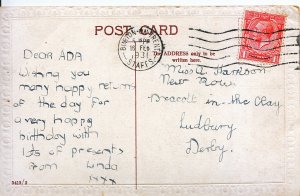 POST CARD
BURTON-ON-TRENT
16 FEB
1931
STAFFS
ADDRESS only to be
written here.
DEAR ADA
Wishing you
many happy returns
of the day. For
a very happy
birthday with
lots of presents
From Linda
xxx
Miss A Harrison
New Row.
Draycott-in-the-Clay
Sudbury
Derby.